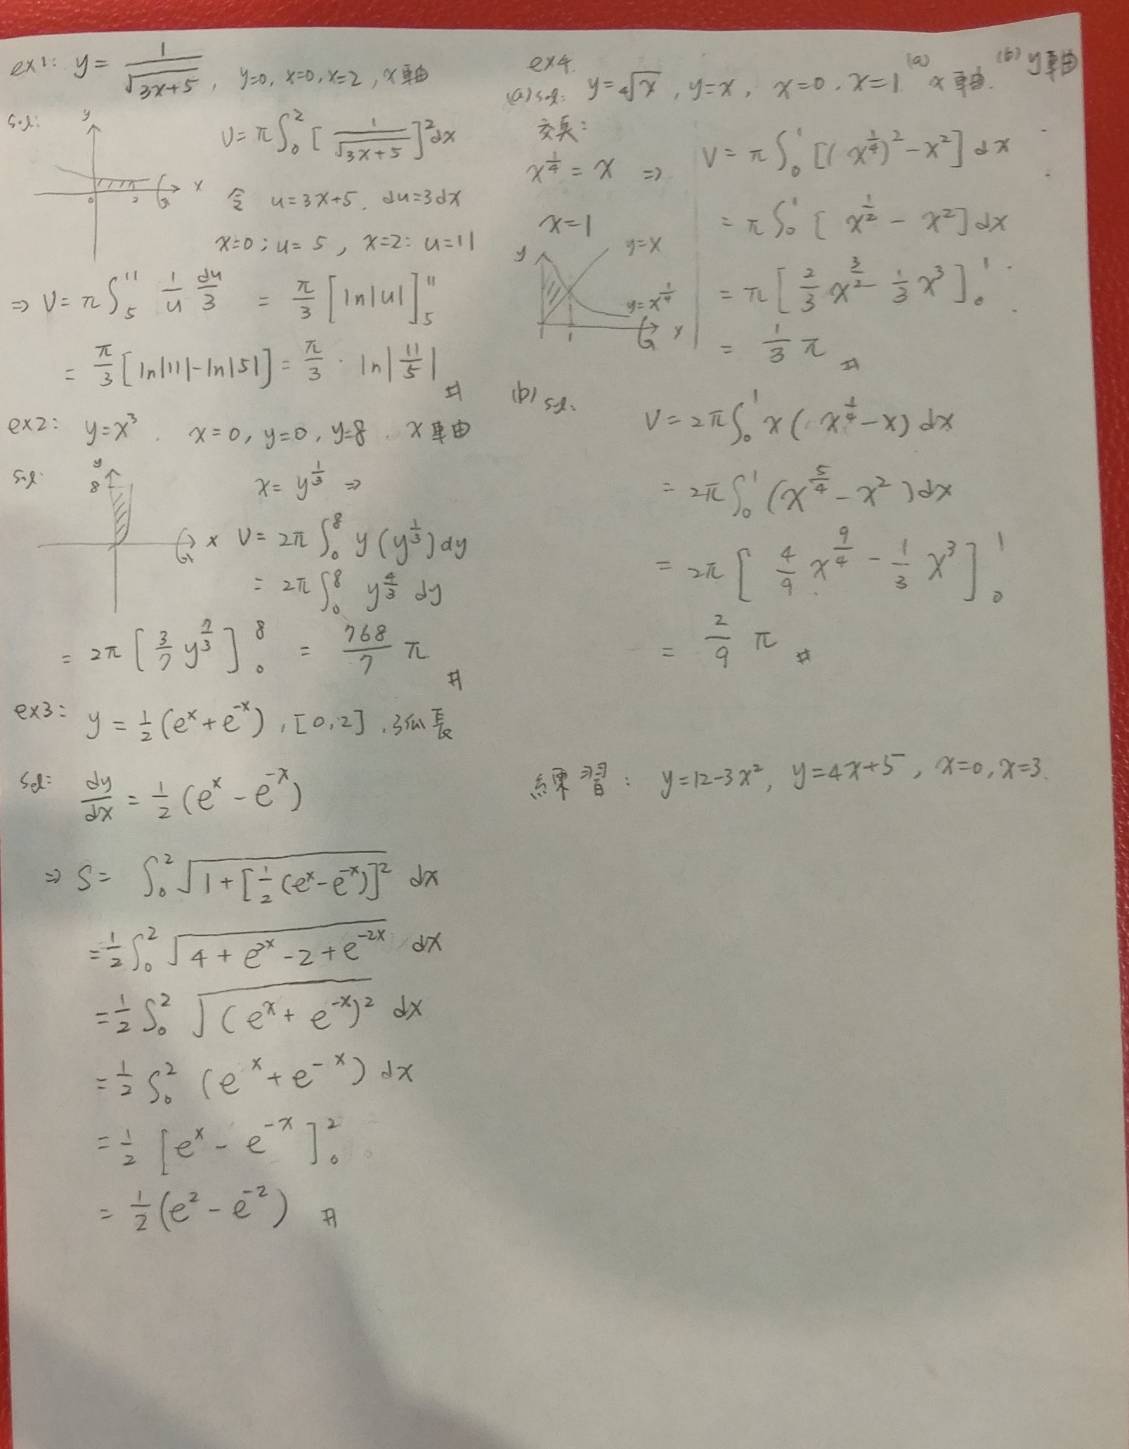 ex1: y = 1/√(3x+5), y=0, x=0, x=2, x軸
sol:
y
V = π∫₀² [1/√(3x+5)]² dx
0 2 x
令 u=3x+5, du=3dx
x=0; u=5, x=2: u=11
⇒ V = π∫₅¹¹ 1/u du/3 = π/3 [ln|u|]₅¹¹
= π/3 [ln|11|-ln|5|] = π/3 · ln|11/5| #
ex2: y=x³, x=0, y=0, y=8, x軸
sol:
y
8
x = y^(1/3) ⇒
x
V = 2π∫₀⁸ y(y^(1/3)) dy
= 2π∫₀⁸ y^(4/3) dy
= 2π [3/7 y^(7/3)]₀⁸ = 768/7 π #
ex3: y = 1/2 (eˣ+e⁻ˣ), [0,2], 弧長
sol: dy/dx = 1/2 (eˣ-e⁻ˣ)
⇒ S = ∫₀² √(1+[1/2 (eˣ-e⁻ˣ)]²) dx
= 1/2 ∫₀² √(4+e²ˣ-2+e⁻²ˣ) dx
= 1/2 ∫₀² √((eˣ+e⁻ˣ)²) dx
= 1/2 ∫₀² (eˣ+e⁻ˣ) dx
= 1/2 [eˣ-e⁻ˣ]₀²
= 1/2 (e²-e⁻²) #
ex4.
(a) sol: y=⁴√x, y=x, x=0, x=1 (a) x軸 (b) y軸
交點:
x^(1/4) = x ⇒
x=1
y
y=x
y=x^(1/4)
1
x
V = π∫₀¹ [(x^(1/4))²-x²] dx
= π∫₀¹ [x^(1/2)-x²] dx
= π [2/3 x^(3/2) - 1/3 x³]₀¹
= 1/3 π #
(b) sol:
V = 2π∫₀¹ x(x^(1/4)-x) dx
= 2π∫₀¹ (x^(5/4)-x²) dx
= 2π [4/9 x^(9/4) - 1/3 x³]₀¹
= 2/9 π #
練習: y=12-3x², y=4x+5, x=0, x=3.